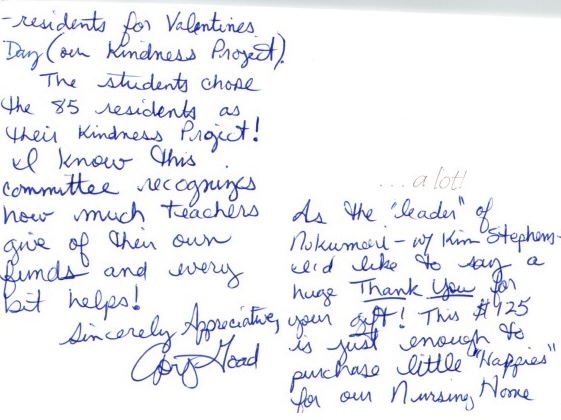 ...a lot!
As the "leader" of
Nukumori - w/ Kim Stephens-
I'd like to say a
huge Thank You for
your gift! This
is just enough to
purchase little "Happies"
for our Nursing Home
-residents for Valentines
Day (our Kindness Project).
The students chose
the 85 residents as
their Kindness Project!
I know this
committee recognizes
how much teachers
give of their own
funds and every
bit helps!
Sincerely Appreciative,
Goad